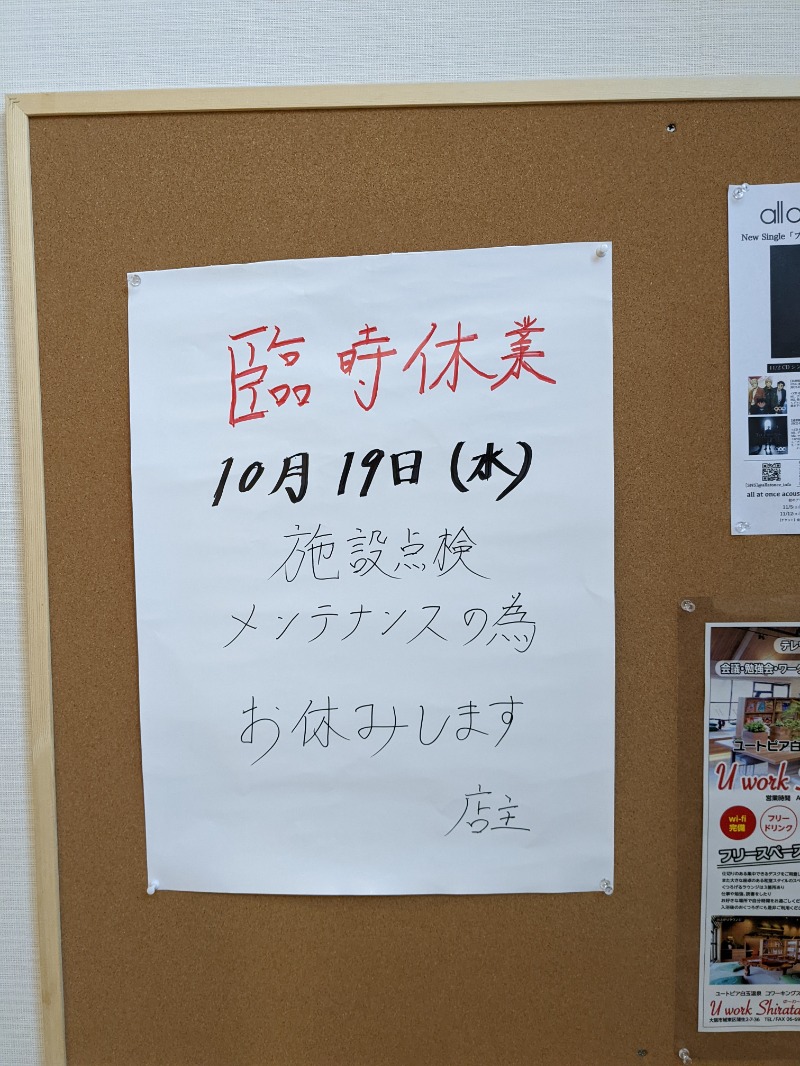 臨時休業
10月19日(水)
施設点検
メンテナンスの為
お休みします
店主
all
New Single「
all at once
テレ
会議・勉強会・ワー
ユートピア白
U work
営業時間
wi-fi
完備
フリー
ドリンク
フリースペース
ユートピア白玉温泉 コワーキング
U work Shirata
大阪市城東区蒲生2-7-36 TEL/FAX 06-